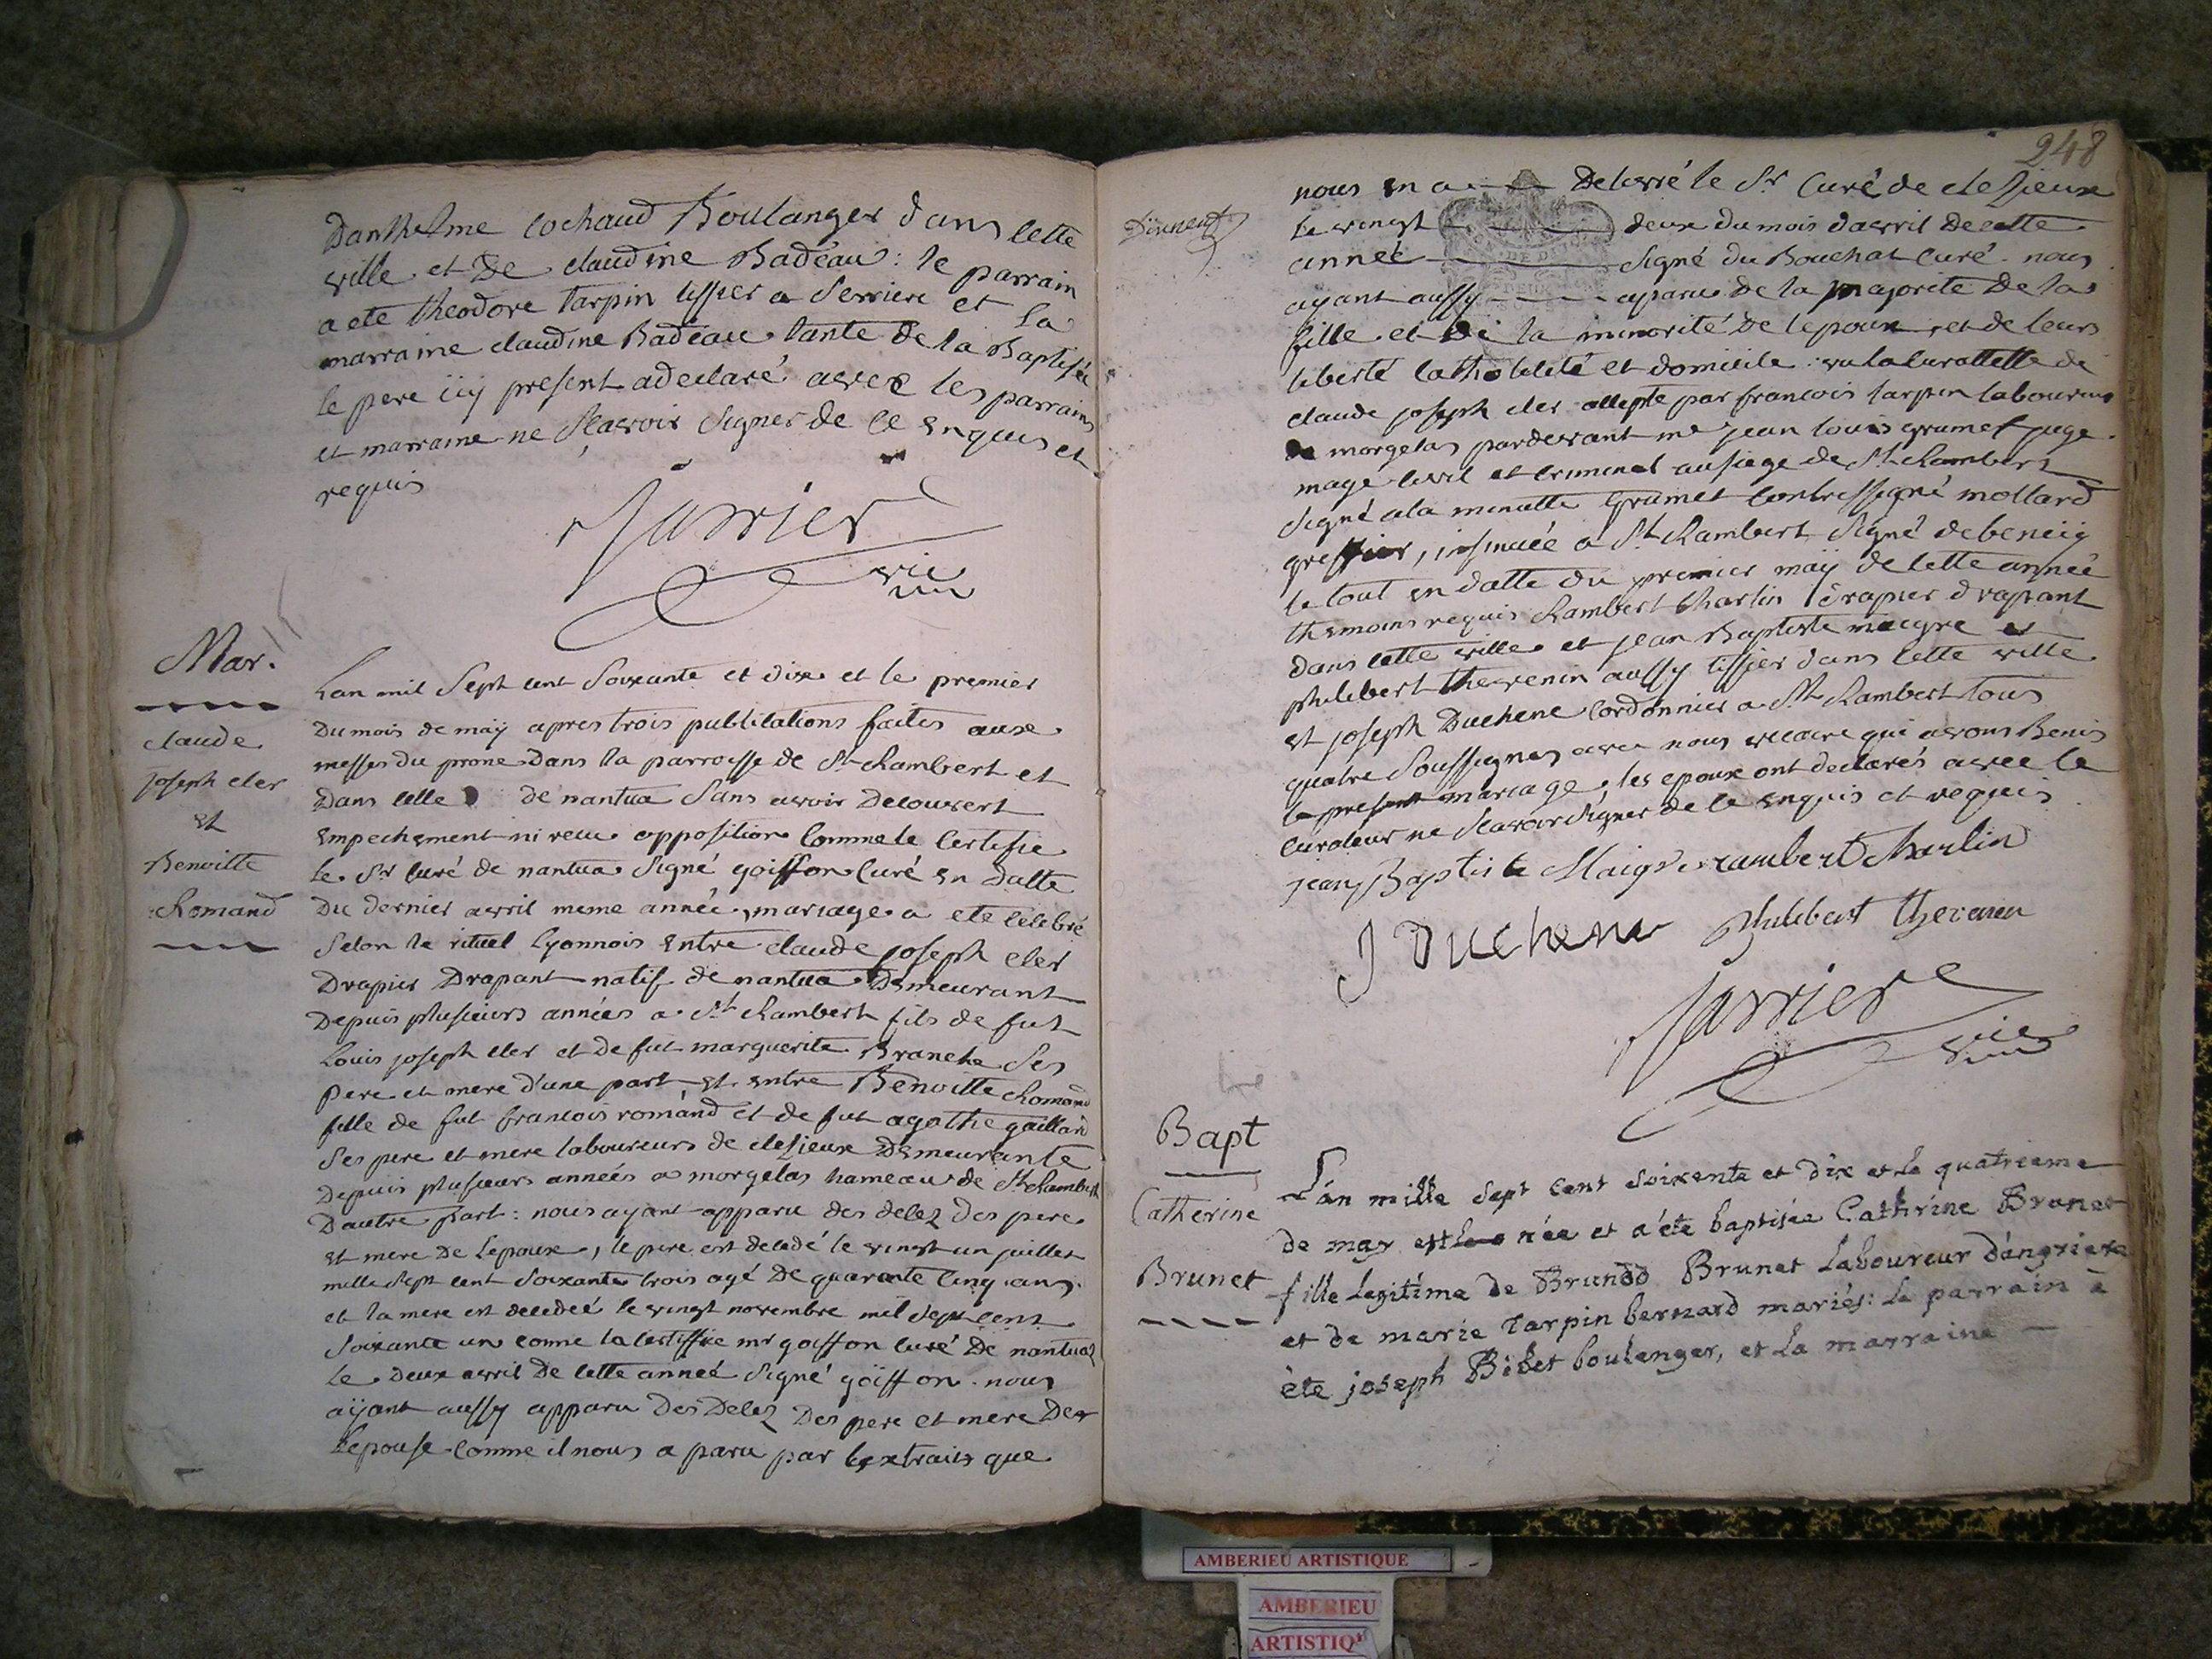 Danthelme Cochaud Boulanger dans cette
ville et De claudine Badeau : le parrain
a eté theodore tarpin tissier a Serriere et La
marraine claudine Badeau tante de la Baptisée
le pere icy present a declaré avec les parrain
et marraine ne Scavoir Signer de ce enquis et
requis
Jarrier
vic
Mar.
claude
joseph cler
et
Benoitte
Romand
Lan mil Sept cent Soixante et dix et le premier
du mois de maÿ apres trois publications faites aux
messes du prone Dans la parroisse de St Rambert et
Dans celle de nantua Sans avoir Decouvert
Empechement ni recu opposition comme le certifie
le Sr curé de nantua Signé goiffon curé en datte
Du dernier avril meme année, mariage a eté celebré
Selon le rituel Lyonnois Entre claude joseph cler
Drapier Drapant natif de nantua Demeurant
Depuis plusieurs années a St Rambert fils de fut
Louis joseph cler et de fut marguerite Branche Ses
Pere et mere d'une part et entre Benoitte Romand
fille de fut francois romand et de fut agathe gaillard
Ses pere et mere laboureurs de clesieux Demeurante
Depuis plusieurs années a morgelas hameau de St Rambert
D'autre part : nous ayant apparu des decez des pere
et mere De Lepoux, le pere est decedé le vingt un juillet
mille Sept cent Soixante trois agé De quarante cinq ans.
et la mere est decedeé le vingt novembre mil Sept cent
Soixante un comme la certiffie mr goiffon curé De nantua
le Deux avril de cette anneé Signé goiffon. nous
aÿant aussy apparu Des Decez Des pere et mere De
Lepouse comme il nous a paru par lextrait que
248
nous en a Delivré le Sr Curé de clesieux
le vingt deux du mois davril De cette
anneé Signé du Bouchat curé. nous
ayant aussy aparu de la majorité De la
fille et de la minorité De lepoux, et de leurs
liberté catholicité et domicile : vu la curattelle de
claude joseph cler accepté par francois tarpin laboureur
de morgelas pardevant me jean louis grumet juge
mage civil et criminel au siege de St Rambert
Signé a la minutte Grumet contressigné mollard
greffier, insinuée a St Rambert Signé debeneiy
le tout en datte du premier maÿ de cette année
themoins requis Rambert Charlin drapier drapant
dans cette ville et jean Baptiste maigre et
philibert thevenin aussy tissier dans cette ville
et joseph Duchene cordonnier a St Rambert tous
quatre Soussignes avec nous vicaire qui avons Benis
le present mariage, les epoux ont declarés avec le
curateur ne Scavoir Signer de ce enquis et requis
jean Baptiste Maigre rambert Charlin
J Duchene Philibert thevenin
Jarrier
vic
Bapt
Catherine
Brunet
L'an mille sept cent soixente et dix et le quatrieme
de may est née et a été baptisée Catherine Brunet
fille Legitime de Brunod Brunet Laboureur d'angriere
et de marie tarpin bernard mariés : Le parrain à
ète joseph Bibet boulenger, et La marraine
AMBERIEU ARTISTIQUE
AMBERIEU
ARTISTIQ